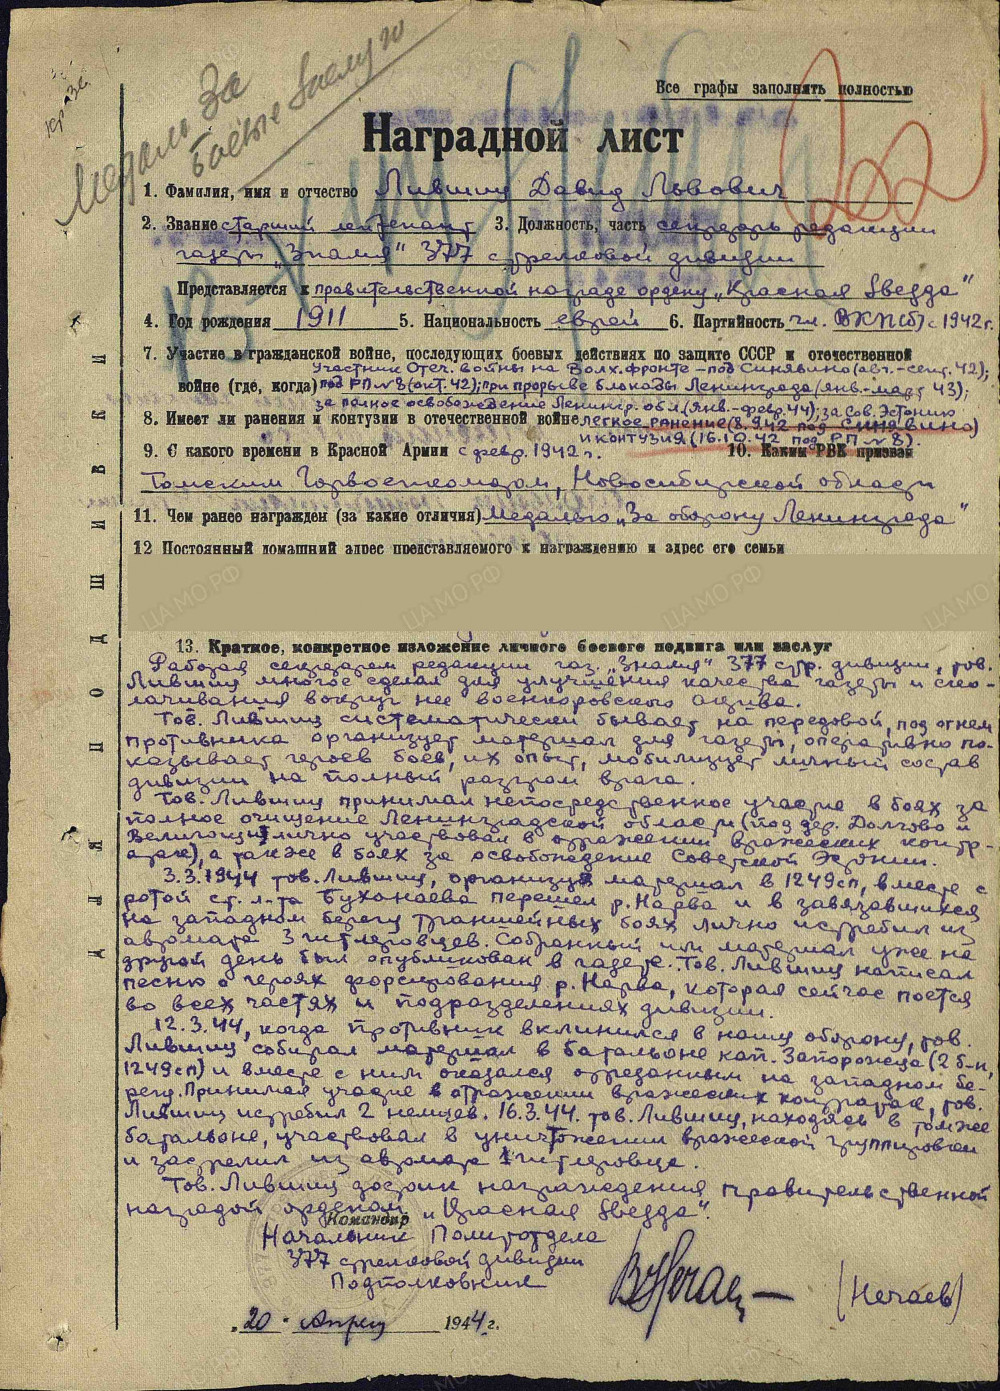 Медаль За
боевые заслуги
Все графы заполнять полностью
Наградной лист
1. Фамилия, имя и отчество Лившиц Давид Львович
2. Звание старший лейтенант 3. Должность, часть секретарь редакции
газеты „Знамя" 377 стрелковой дивизии
Представляется к правительственной награде ордену „Красная Звезда"
4. Год рождения 1911 5. Национальность еврей 6. Партийность чл. ВКП(б) с 1942 г.
7. Участие в гражданской войне, последующих боевых действиях по защите СССР и отечественной
участник Отеч. войны на Волх. фронте – под Синявино (авг. – сент. 42);
войне (где, когда) под РП №8 (окт. 42); при прорыве блокады Ленинграда (янв. – март 43);
за полное освобождение Ленингр. обл. (янв. – февр. 44); за Сов. Эстонию
8. Имеет ли ранения и контузии в отечественной войне легкое ранение (8.9.42 под Синявино)
и контузия (16.10.42 под РП №8).
9. С какого времени в Красной Армии с февр. 1942 г. 10. Каким РВК призван
Томским Горвоенкоматом, Новосибирской области
11. Чем ранее награжден (за какие отличия) Медалью „За оборону Ленинграда"
12 Постоянный домашний адрес представляемого к награждению и адрес его семьи
ДЛЯ ПОДШИВКИ
13. Краткое, конкретное изложение личного боевого подвига или заслуг
Работая секретарем редакции газ. „Знамя" 377 стр. дивизии, тов.
Лившиц многое сделал для улучшения качества газеты и ско-
лачивания вокруг нее военкоровского актива.
Тов. Лившиц систематически бывает на передовой, под огнем
противника организует материал для газеты, оперативно по-
казывает героев боев, их опыт, мобилизует личный состав
дивизии на полный разгром врага.
Тов. Лившиц принимал непосредственное участие в боях за
полное очищение Ленинградской области (под дер. Долгово и
лично участвовал в отражении вражеских контр-
атак), а также в боях за освобождение Советской Эстонии.
3.3.1944 тов. Лившиц, организуя материал в 1249 сп, вместе с
ротой ст. л-та Буханаева перешел р. Нарва и в завязавшихся
на западном берегу траншейных боях лично истребил из
автомата 3 гитлеровцев. Собранный им материал уже на
другой день был опубликован в газете. Тов. Лившиц написал
песню о героях форсирования р. Нарва, которая сейчас поется
во всех частях и подразделениях дивизии.
12.3.44, когда противник вклинился в нашу оборону, тов.
Лившиц собирал материал в батальоне кап. Запорожца (2 б-н,
1249 сп) и вместе с ним оказался отрезанным на западном бе-
регу. Принимая участие в отражении вражеских контратак, тов.
Лившиц истребил 2 немцев. 16.3.44. тов. Лившиц, находясь в том же
батальоне, участвовал в уничтожении вражеской группировки
и застрелил из автомата 1 гитлеровца.
Тов. Лившиц достоин награждения правительственной
наградой орденом „Красная Звезда".
Командир
Начальник Политотдела
377 стрелковой дивизии
Подполковник (Нечаев)
„20" Апреля 1944 г.